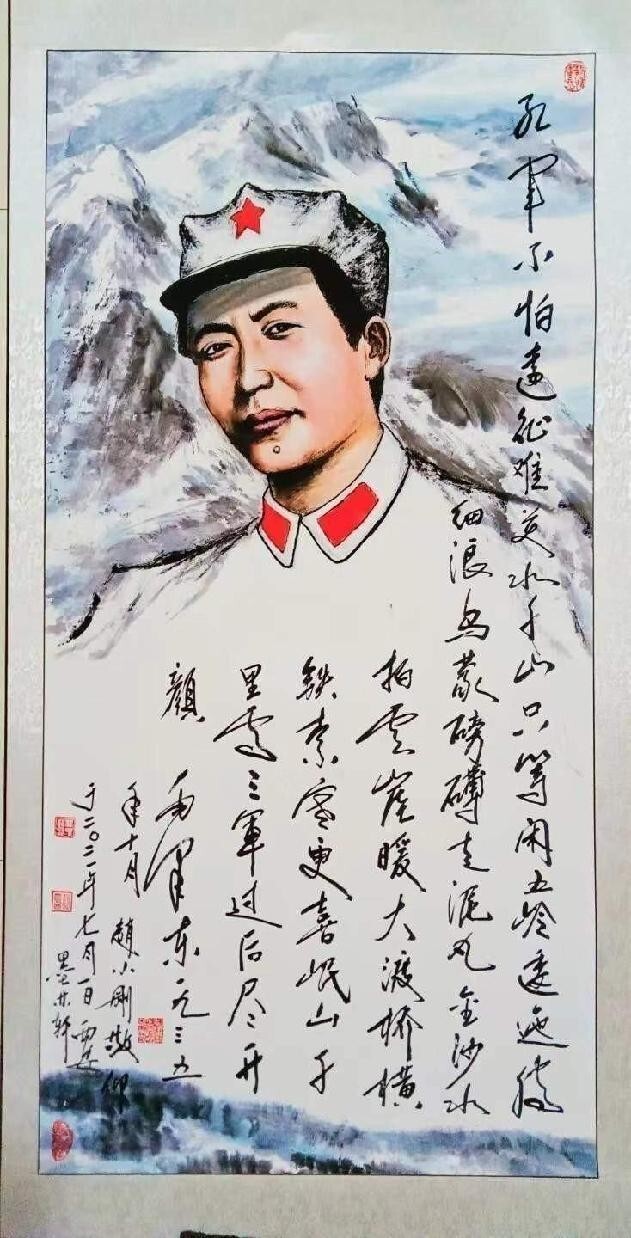 红軍不怕遠征难万水千山只等闲五岭逶迤腾
细浪乌蒙磅礴走泥丸金沙水
拍雲崖暖大渡桥横
铁索寒更喜岷山千
里雪三軍过后尽开
顔
毛泽东一九三五
年十月
趙小刚敬仰
于二〇二一年七月一日西安